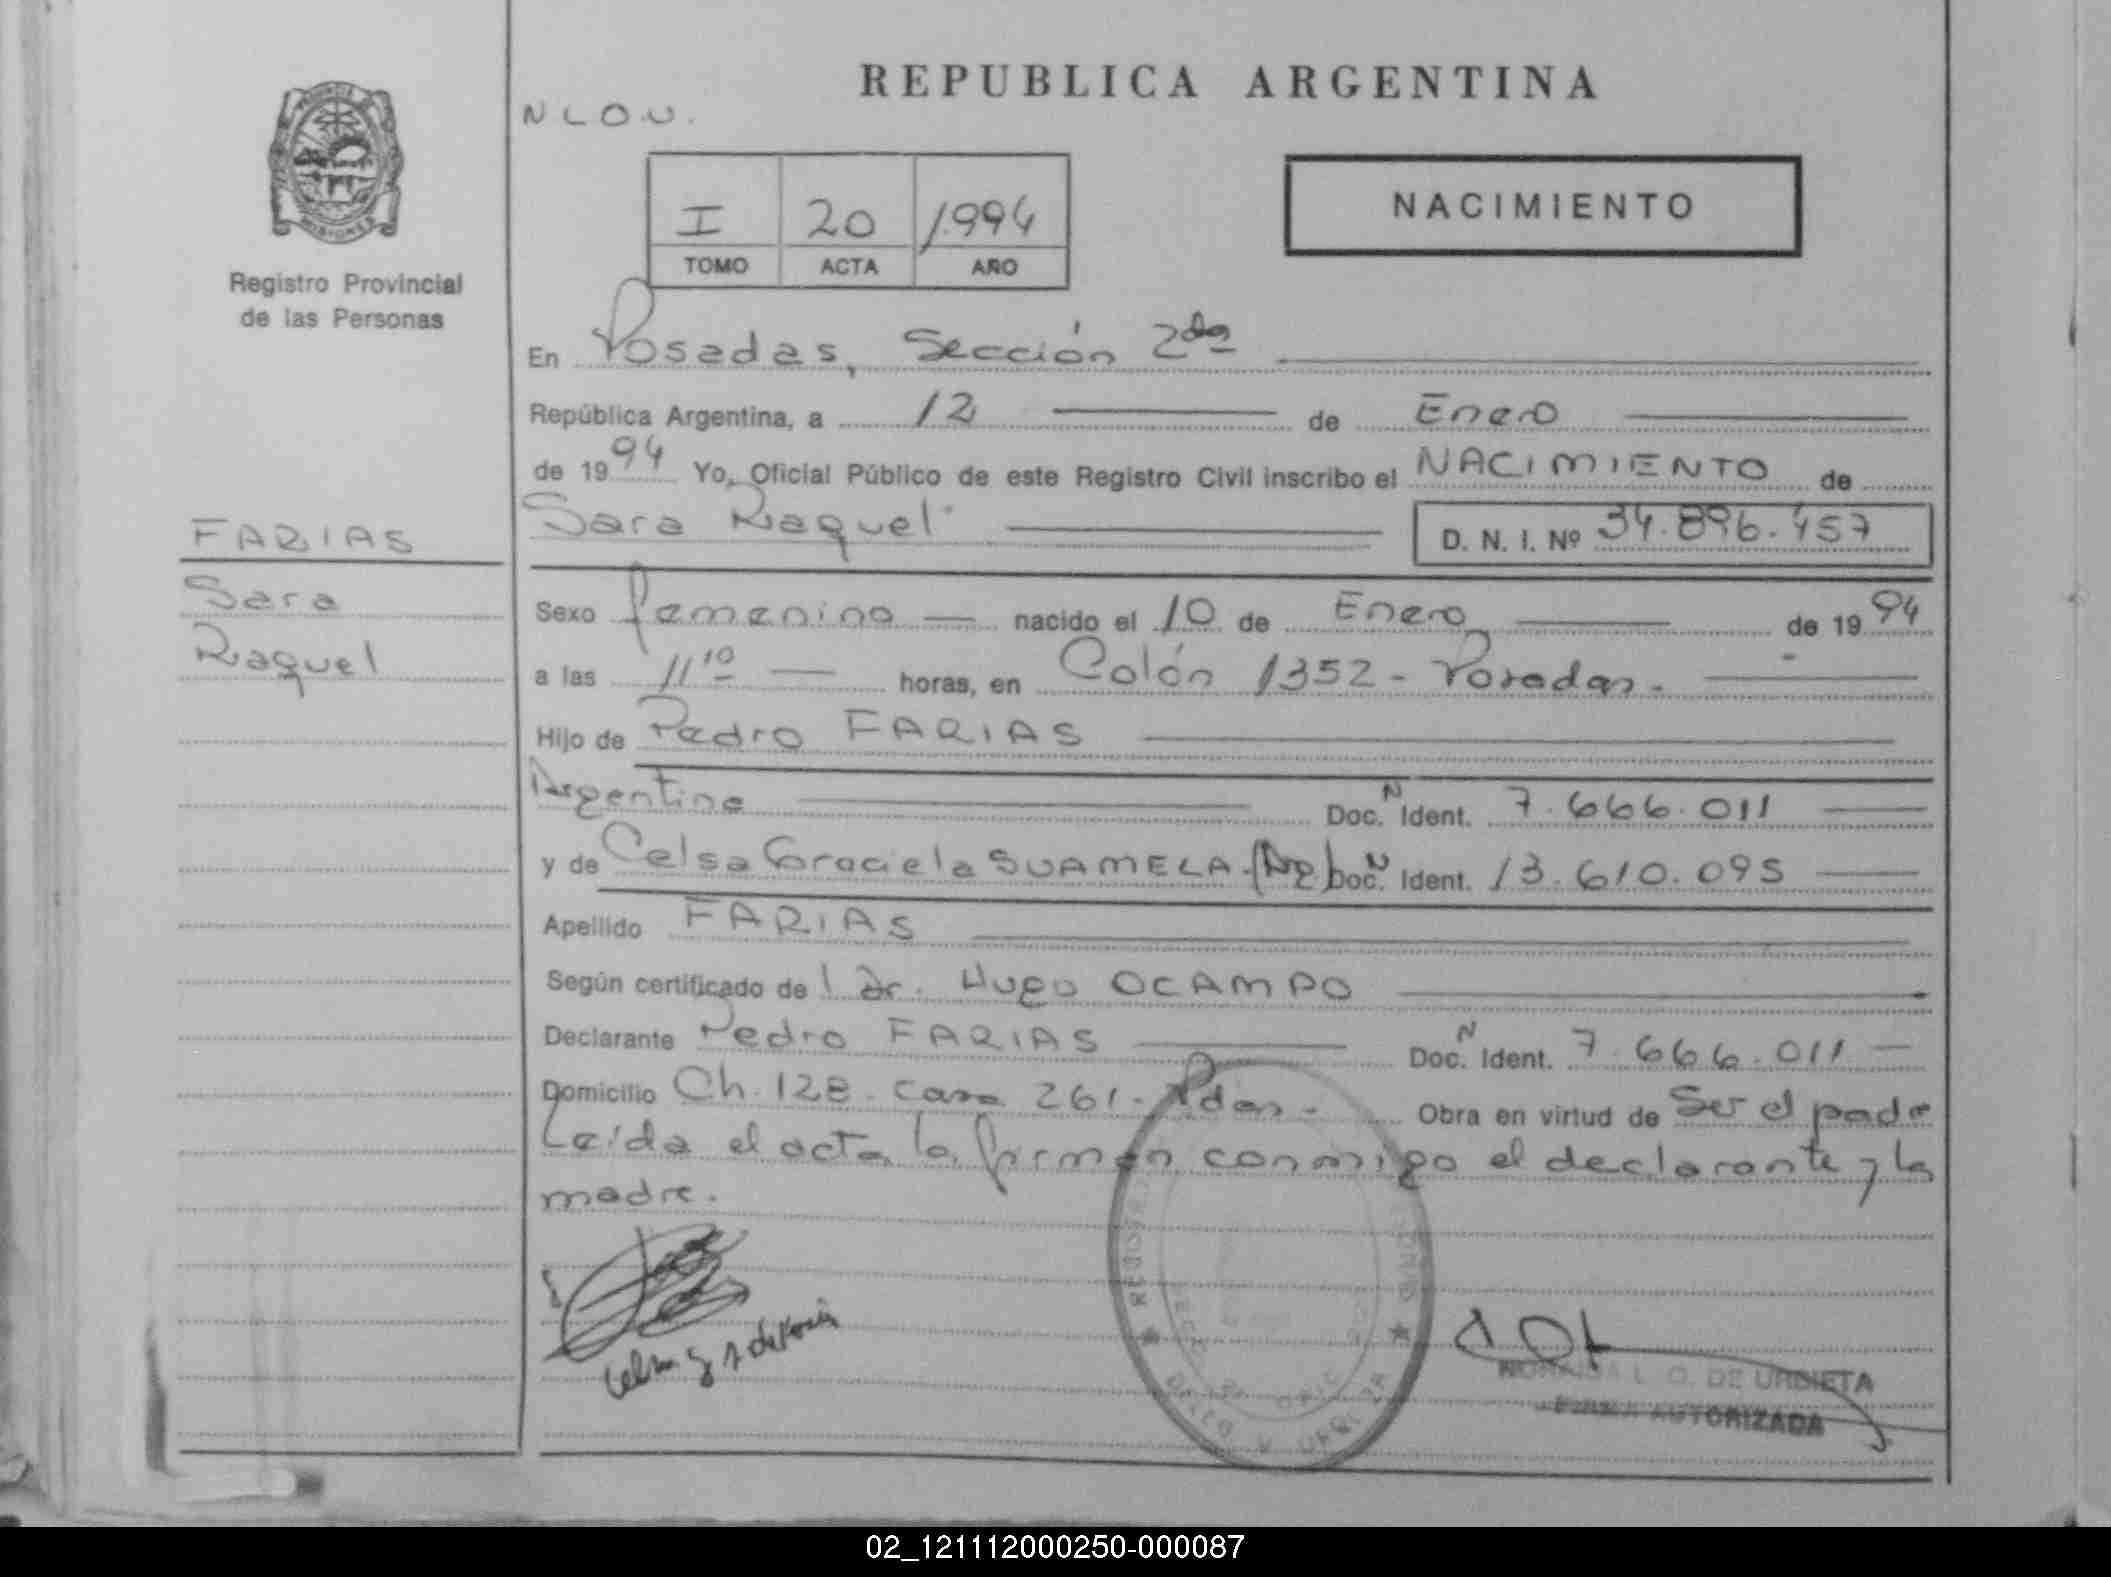 REPUBLICA ARGENTINA
N L O. U.
I 20 1.994
TOMO ACTA AÑO
NACIMIENTO
PROVINCIA DE MISIONES
Registro Provincial
de las Personas
FARIAS
Sara
Raquel
En Posadas, Sección 2da
República Argentina, a 12 de Enero
de 1994 Yo, Oficial Público de este Registro Civil inscribo el NACIMIENTO de
Sara Raquel D. N. I. Nº 34.896.457
Sexo femenino nacido el 10 de Enero de 1994
a las 11 10 horas, en Colón 1352 - Posadas.
Hijo de Pedro FARIAS
Argentino Doc. N Ident. 7.666.011
y de Celsa Graciela SUAMELA - (Arg) Doc. N Ident. 13.610.095
Apellido FARIAS
Según certificado del Dr. Hugo OCAMPO
Declarante Pedro FARIAS Doc. N Ident. 7.666.011
Domicilio Ch. 128 - casa 261 - Pdas. Obra en virtud de Ser el padre
Leída el acta la firman conmigo el declarante y la
madre.
L. O. DE URDIETA
FIRMA AUTORIZADA
02_121112000250-000087